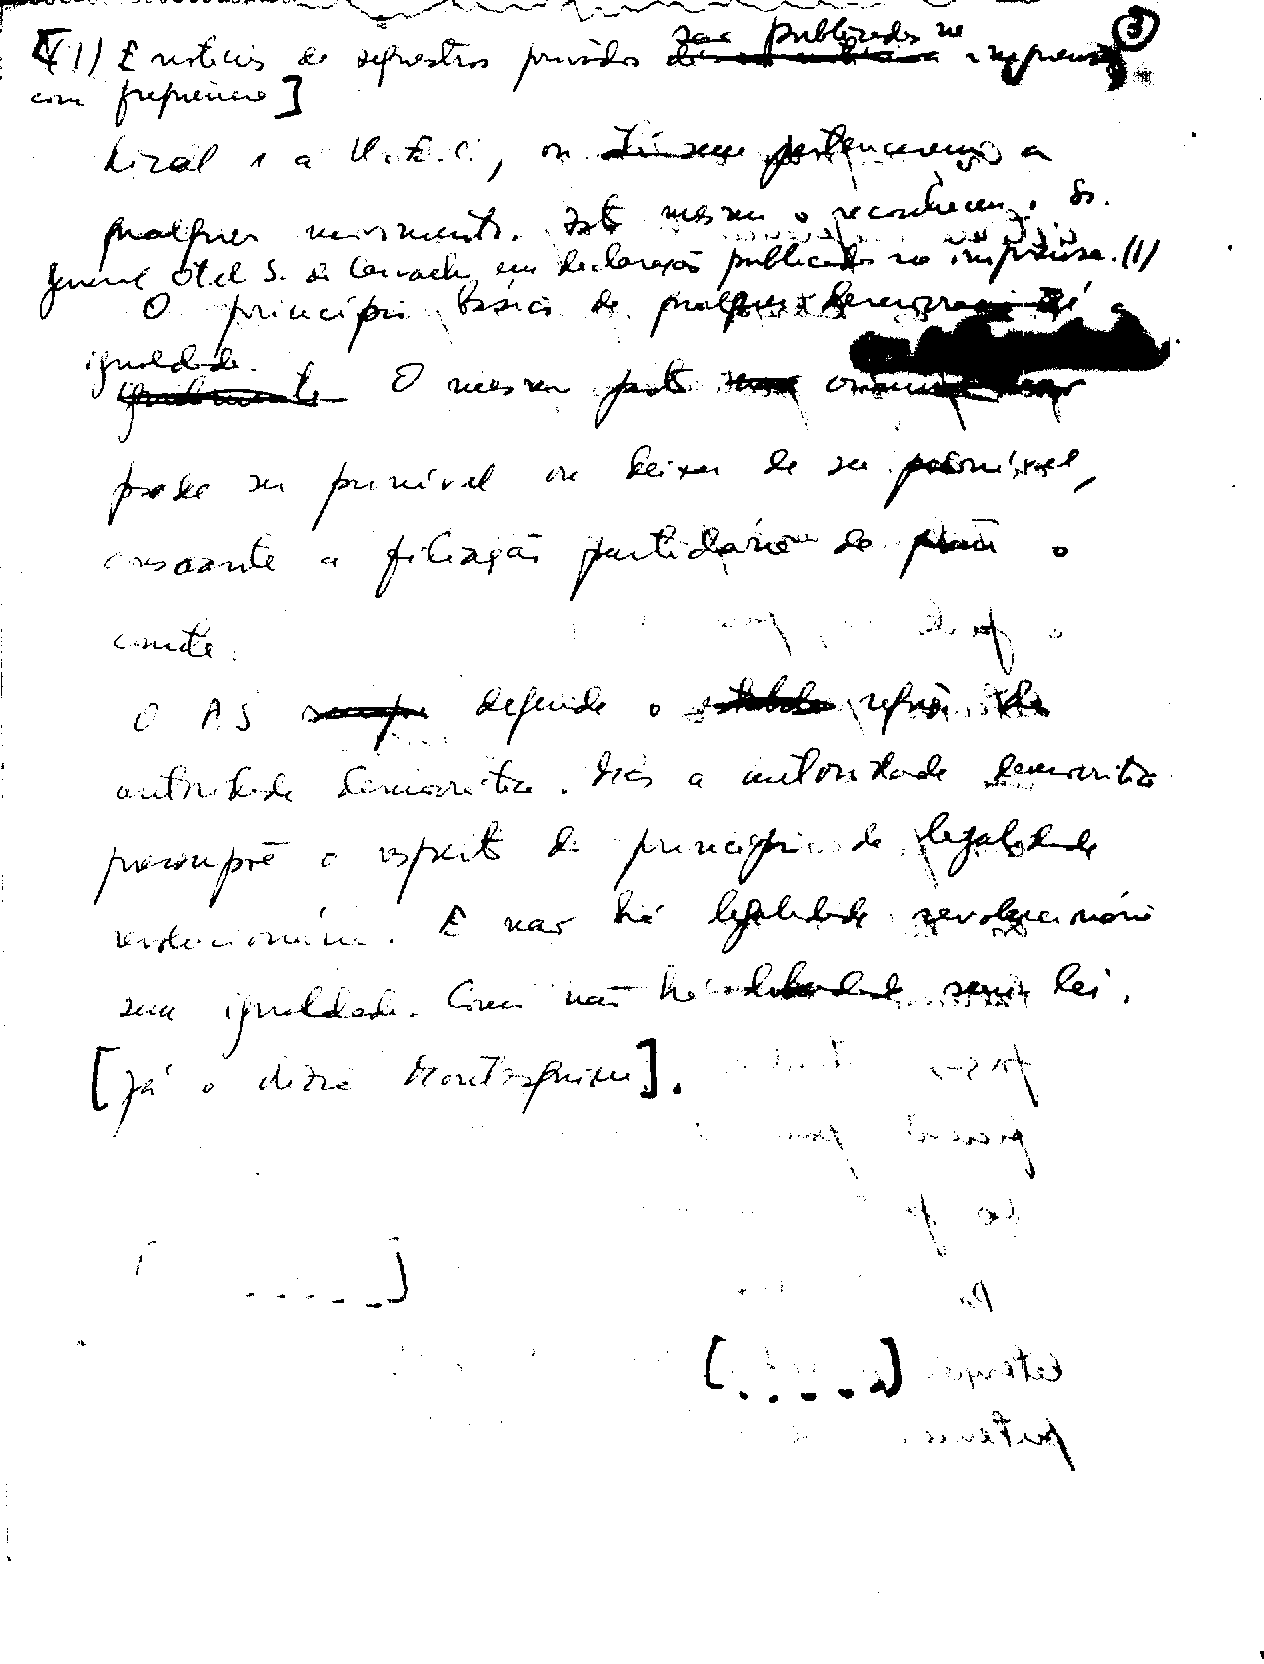 são publicadas na ③
[(1) E notícias de sequestros privados imprensa
com frequência]
a U. E. C., ou pertencerem a
qualquer movimento. Isto mesmo o reconheceu o Sr.
General Otelo S. de Carvalho, em declaração publicada na imprensa. (1)
O princípio básico de qualquer democracia é a
igualdade.
O mesmo facto
pode ser punível ou deixar de ser punível,
consoante a filiação partidária de quem o
comete.
O P.S defende o reforço da
autoridade democrática. Mas a autoridade democrática
pressupõe o respeito do princípio da legalidade
revolucionária. E não há legalidade revolucionária
sem igualdade. Como não há liberdade sem lei.
[Já o dizia Montesquieu].